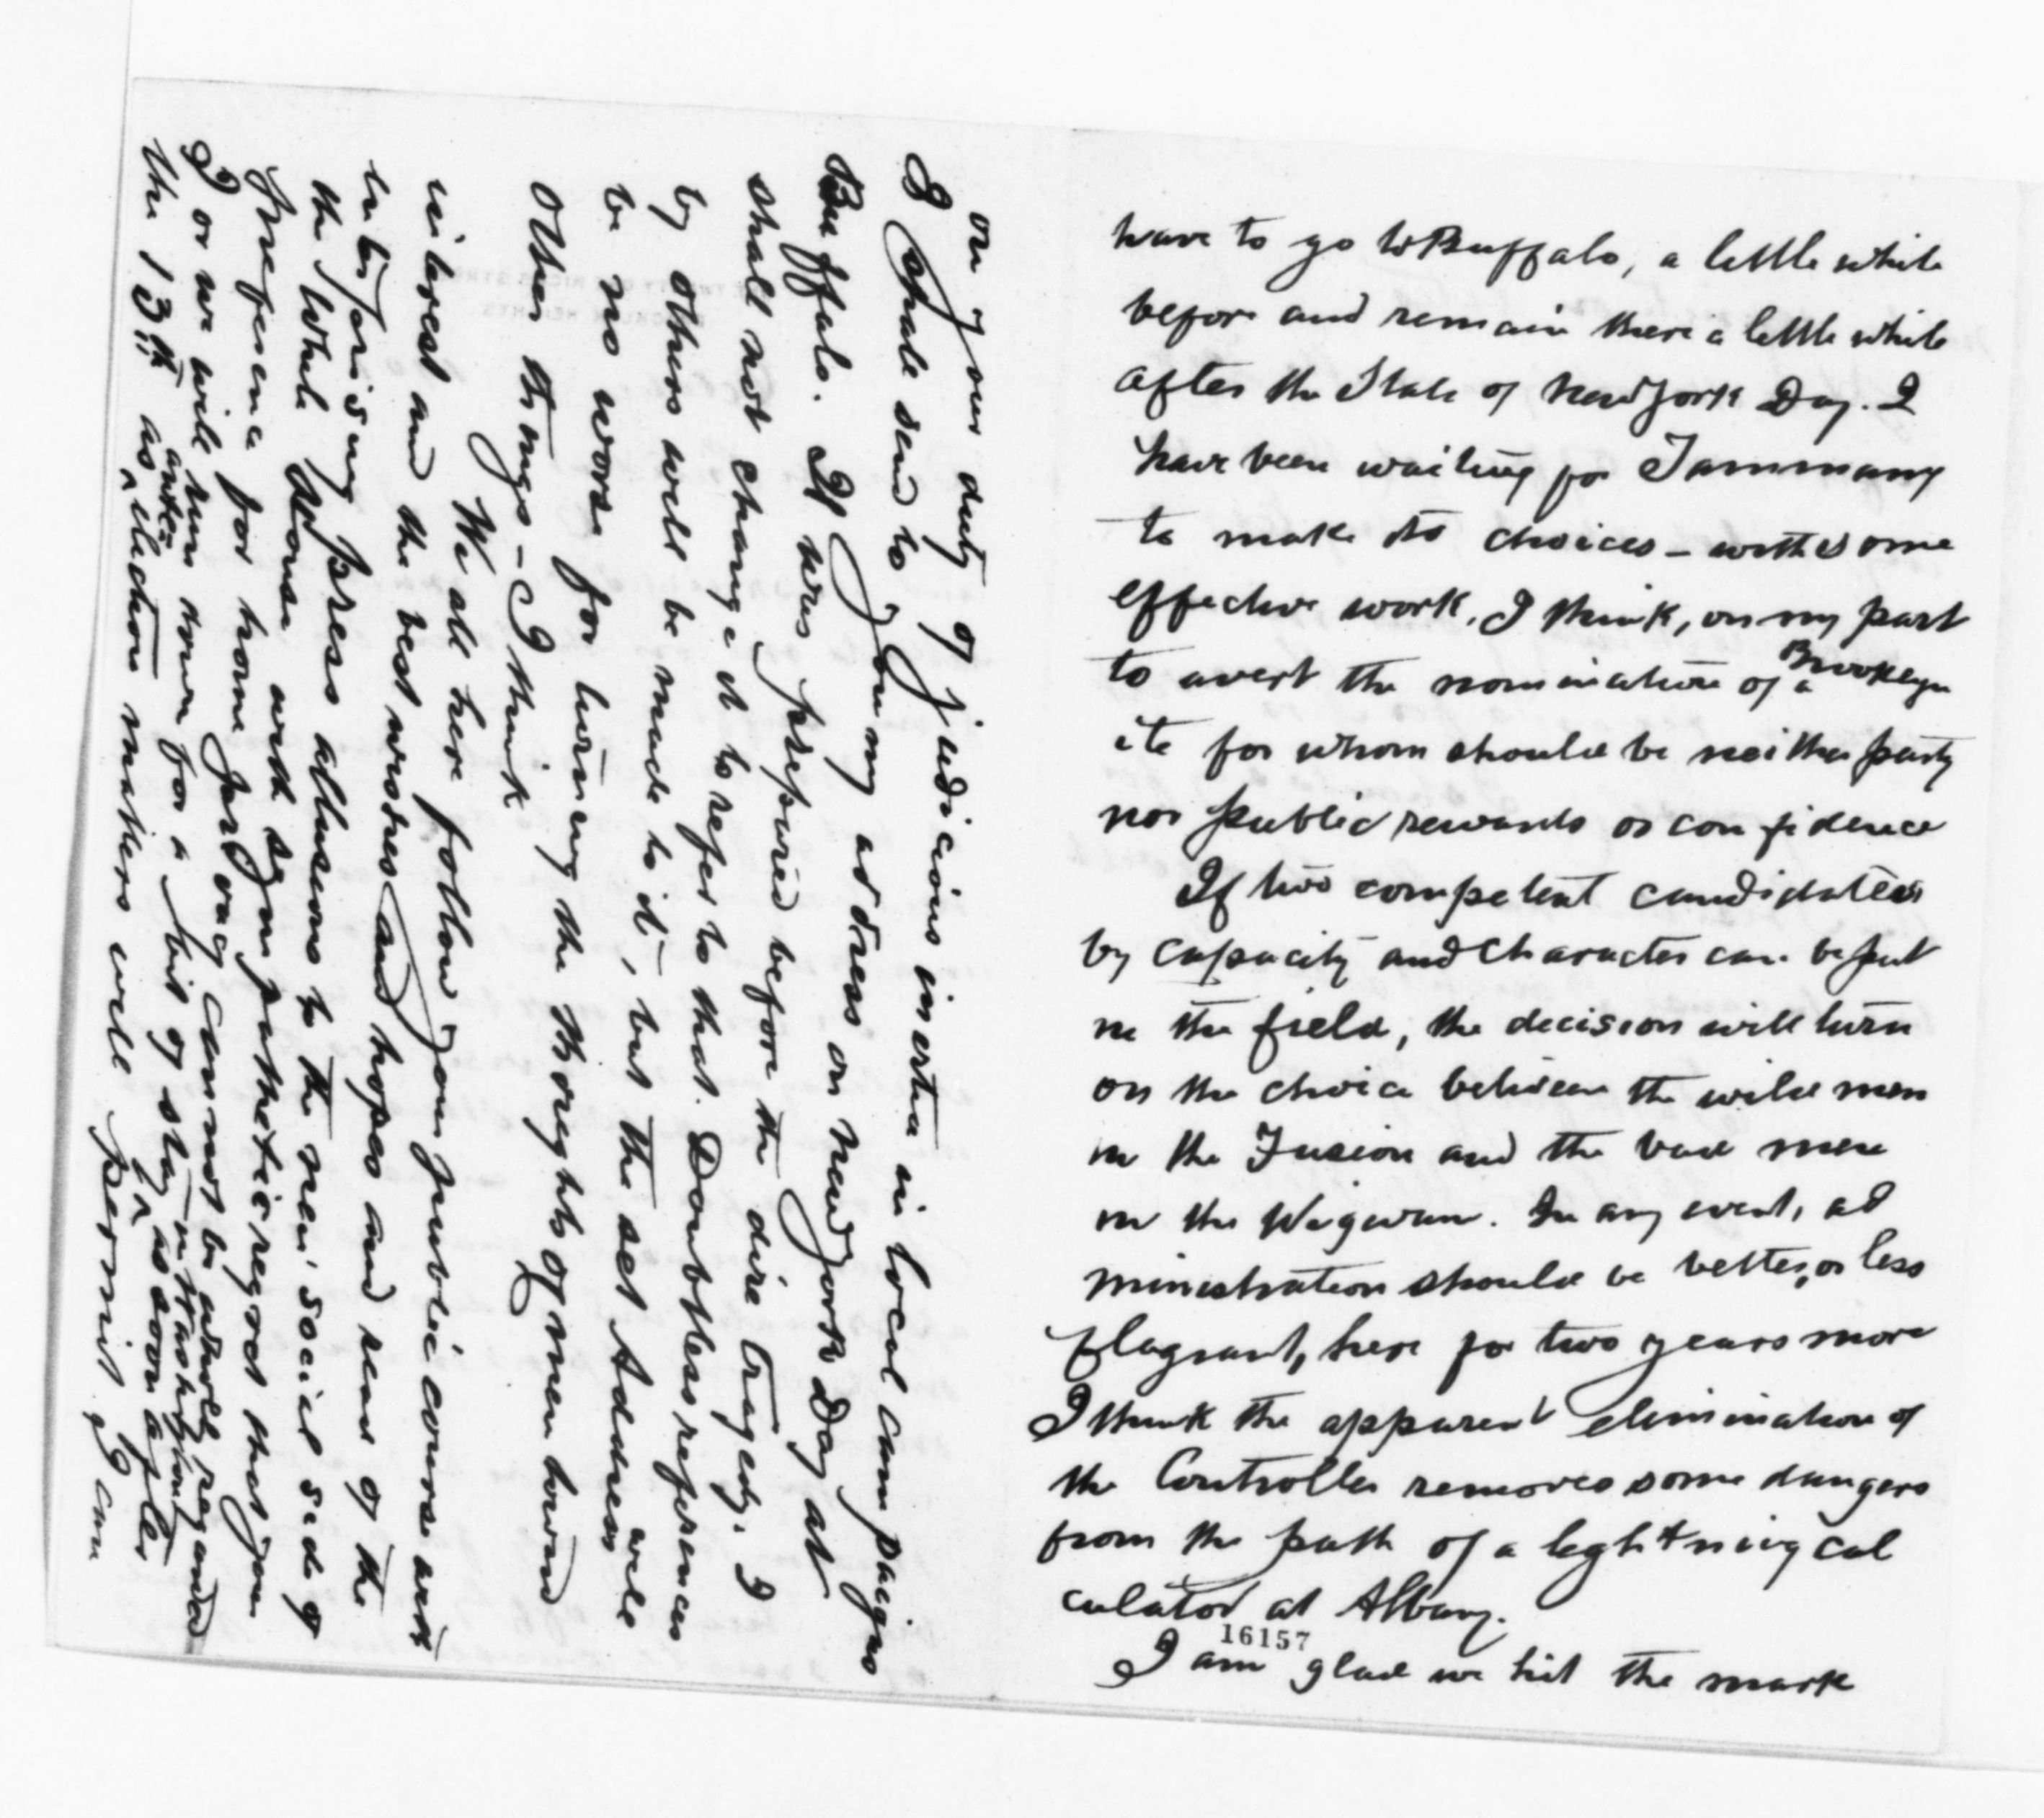 have to go to Buffalo, a little while
before and remain there a little while
after the State of New York Day. I
have been waiting for Tammany
to make its choices – with some
effective work, I think, on my part
to avert the nomination of a Brooklyn
ite for whom should be neither party
nor public rewards or confidence
If two competent candidates
by capacity and character can be put
in the field, the decision will turn
on the choice between the wild men
in the Fusion and the bad men
in the Wigwam. In any event, ad
ministration should be better, or less
flagrant, here for two years more
I think the apparent elimination of
the Controller removes some dangers
from the path of a lightning cal
culator at Albany.
16157
I am glad we hit the mark
on your duty of judicious inertia in local campaigns
I shall send to you my address on New York Day at
Buffalo. It was prepared before the dire tragedy. I
shall not change it to refer to that. Doubtless references
by others will be made to it, but the set Address will
be no worse for turning the thoughts of men toward
other things – I think
We all here follow your public course with
interest and the best wishes and hopes and read of the
enterprising press allusions to the new social side of
the White House with sympathetic regret that your
preference for home privacy cannot be wholly regarded
I or we will run down for a bit of stay in Washington
the 13th as after election matters will permit if I can as soon after